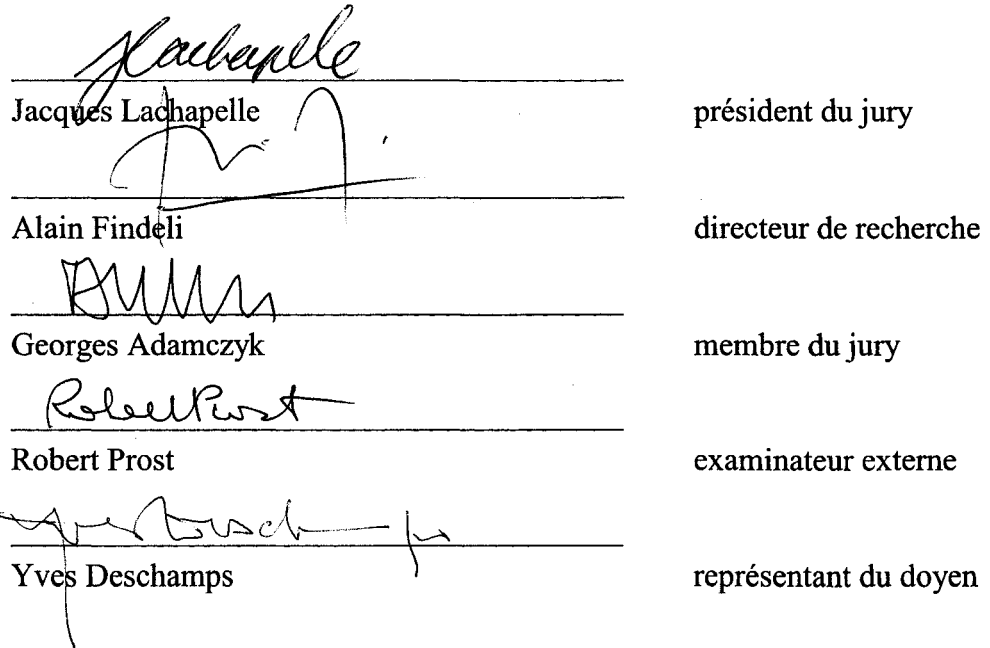 JLachapelle
Jacques Lachapelle président du jury
Alain Findeli directeur de recherche
Georges Adamczyk membre du jury
Robert Prost
Robert Prost examinateur externe
Yves Deschamps
Yves Deschamps représentant du doyen